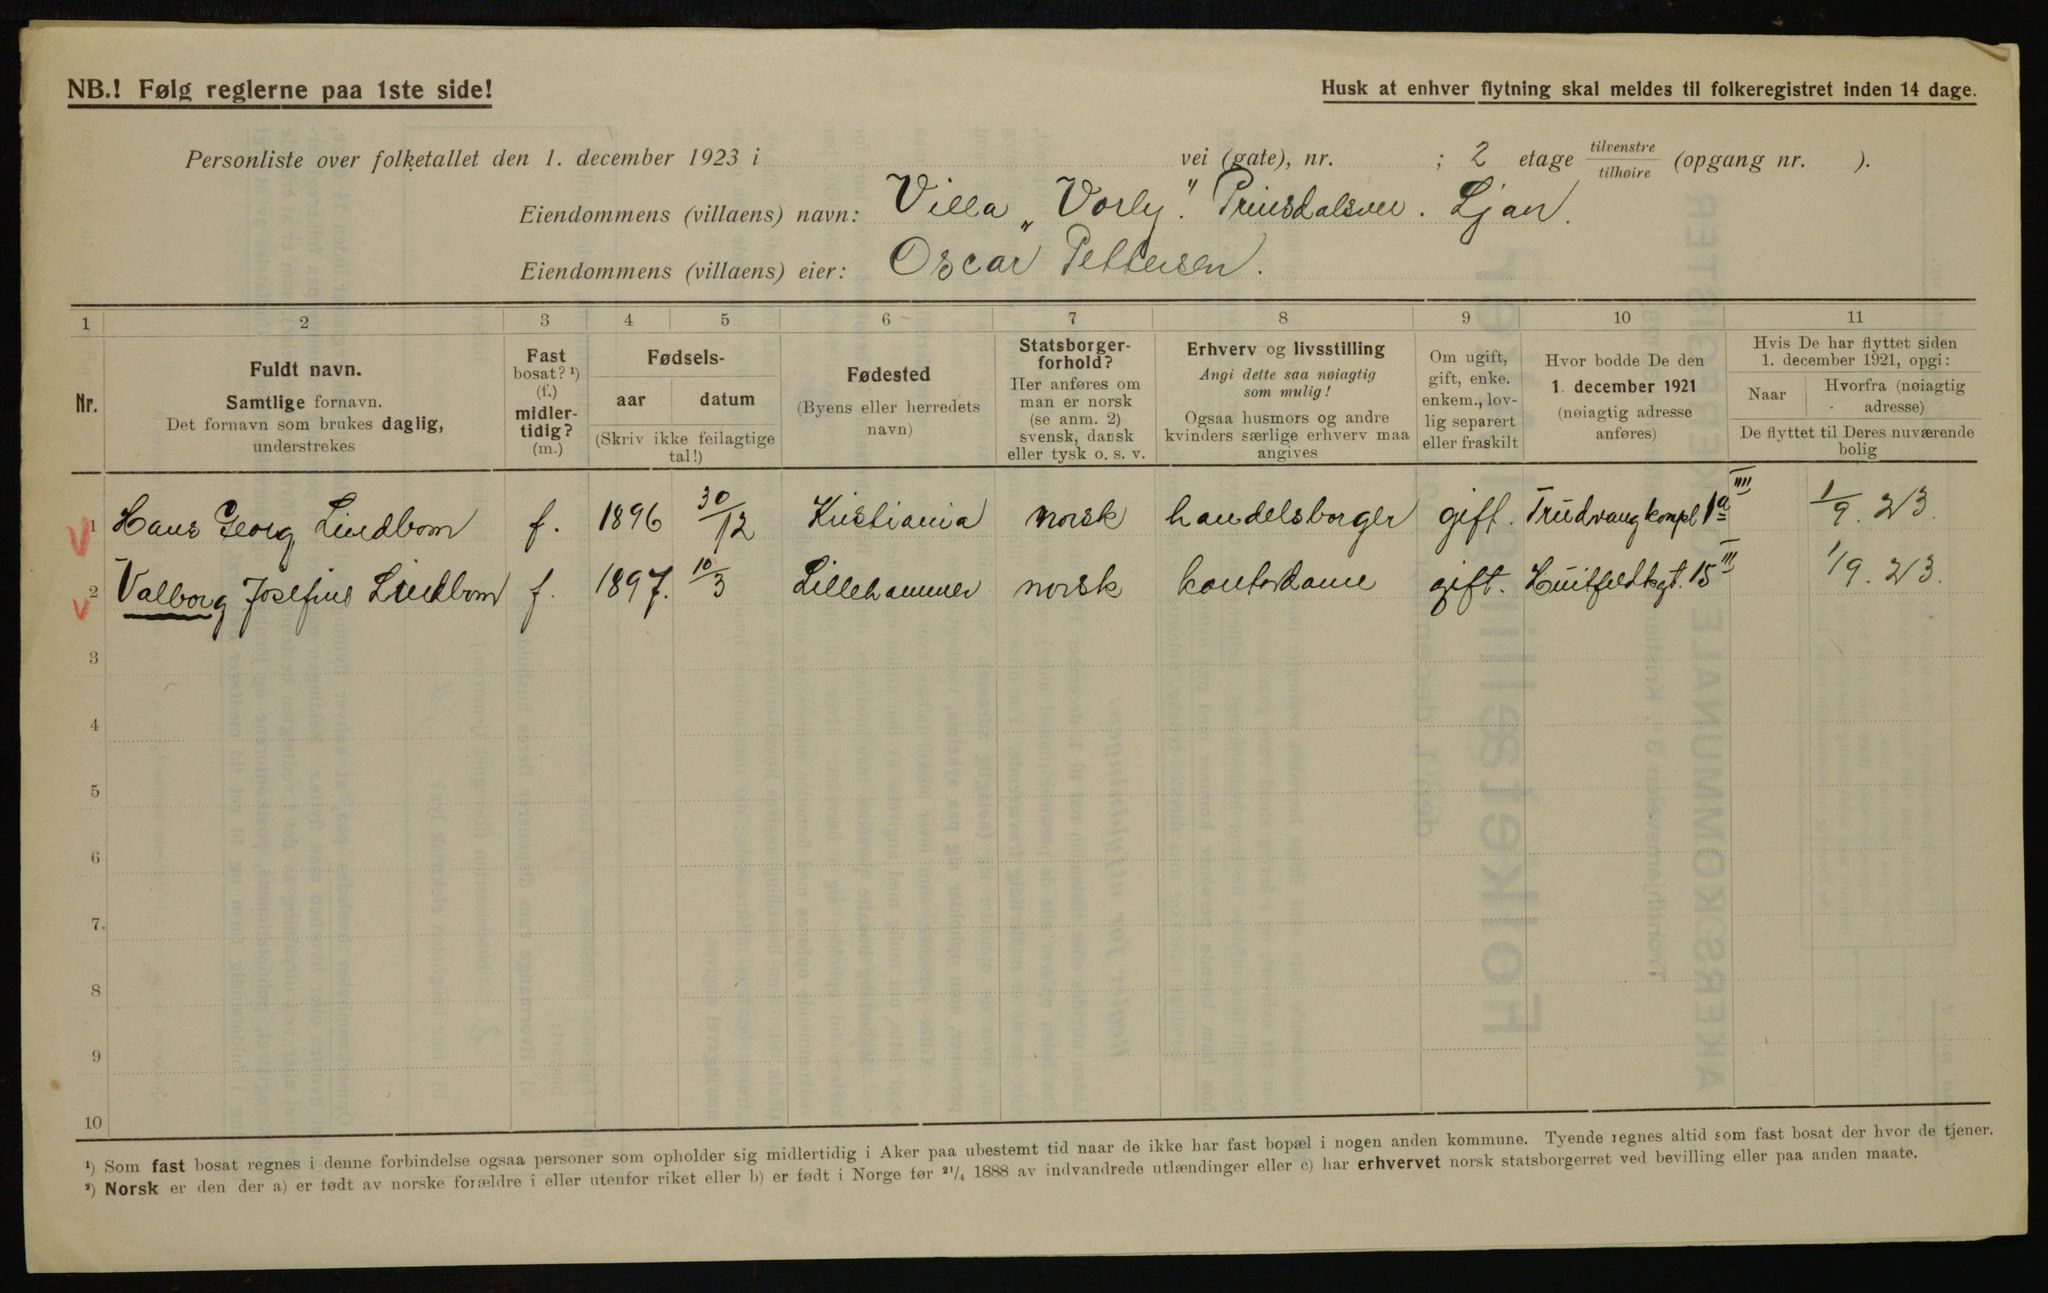 NB.! Følg reglerne paa 1ste side!
Husk at enhver flytning skal meldes til folkeregistret inden 14 dage.
Personliste over folketallet den 1. december 1923 i vei (gate), nr. ; 2 etage tilvenstre/tilhøire (opgang nr. ).
Eiendommens (villaens) navn: Villa „Vorly". Prinsdalsvei. Ljan.
Eiendommens (villaens) eier: Oscar Pettersen.
1 2 3 4 5 6 7 8 9 10 11
Nr.
Fuldt navn.
Samtlige fornavn.
Det fornavn som brukes daglig,
understrekes
Fast
bosat? ¹)
(f.)
midler-
tidig?
(m.)
Fødsels-
aar datum
(Skriv ikke feilagtige
tal!)
Fødested
(Byens eller herredets
navn)
Statsborger-
forhold?
Her anføres om
man er norsk
(se anm. 2)
svensk, dansk
eller tysk o. s. v.
Erhverv og livsstilling
Angi dette saa nøiagtig
som mulig!
Ogsaa husmors og andre
kvinders særlige erhverv maa
angives
Om ugift,
gift, enke.
enkem., lov-
lig separert
eller fraskilt
Hvor bodde De den
1. december 1921
(nøiagtig adresse
anføres)
Hvis De har flyttet siden
1. december 1921, opgi:
Naar
Hvorfra (nøiagtig
adresse)
De flyttet til Deres nuværende
bolig
1 Hans Georg Lindbom f. 1896 30/12 Kristiania norsk handelsborger gift. Trudvangkompl 1a IIII 1/9. 23.
2 Valborg Josefine Lindbom f. 1897. 10/3 Lillehammer norsk kontordame gift. Huitfeldtsgt. 15 III 1/9. 23.
3
4
5
6
7
8
9
10
¹) Som fast bosat regnes i denne forbindelse ogsaa personer som opholder sig midlertidig i Aker paa ubestemt tid naar de ikke har fast bopæl i nogen anden kommune. Tyende regnes altid som fast bosat der hvor de tjener.
²) Norsk er den der a) er født av norske forældre i eller utenfor riket eller b) er født i Norge før 21/4 1888 av indvandrede utlændinger eller c) har erhvervet norsk statsborgerret ved bevilling eller paa anden maate.